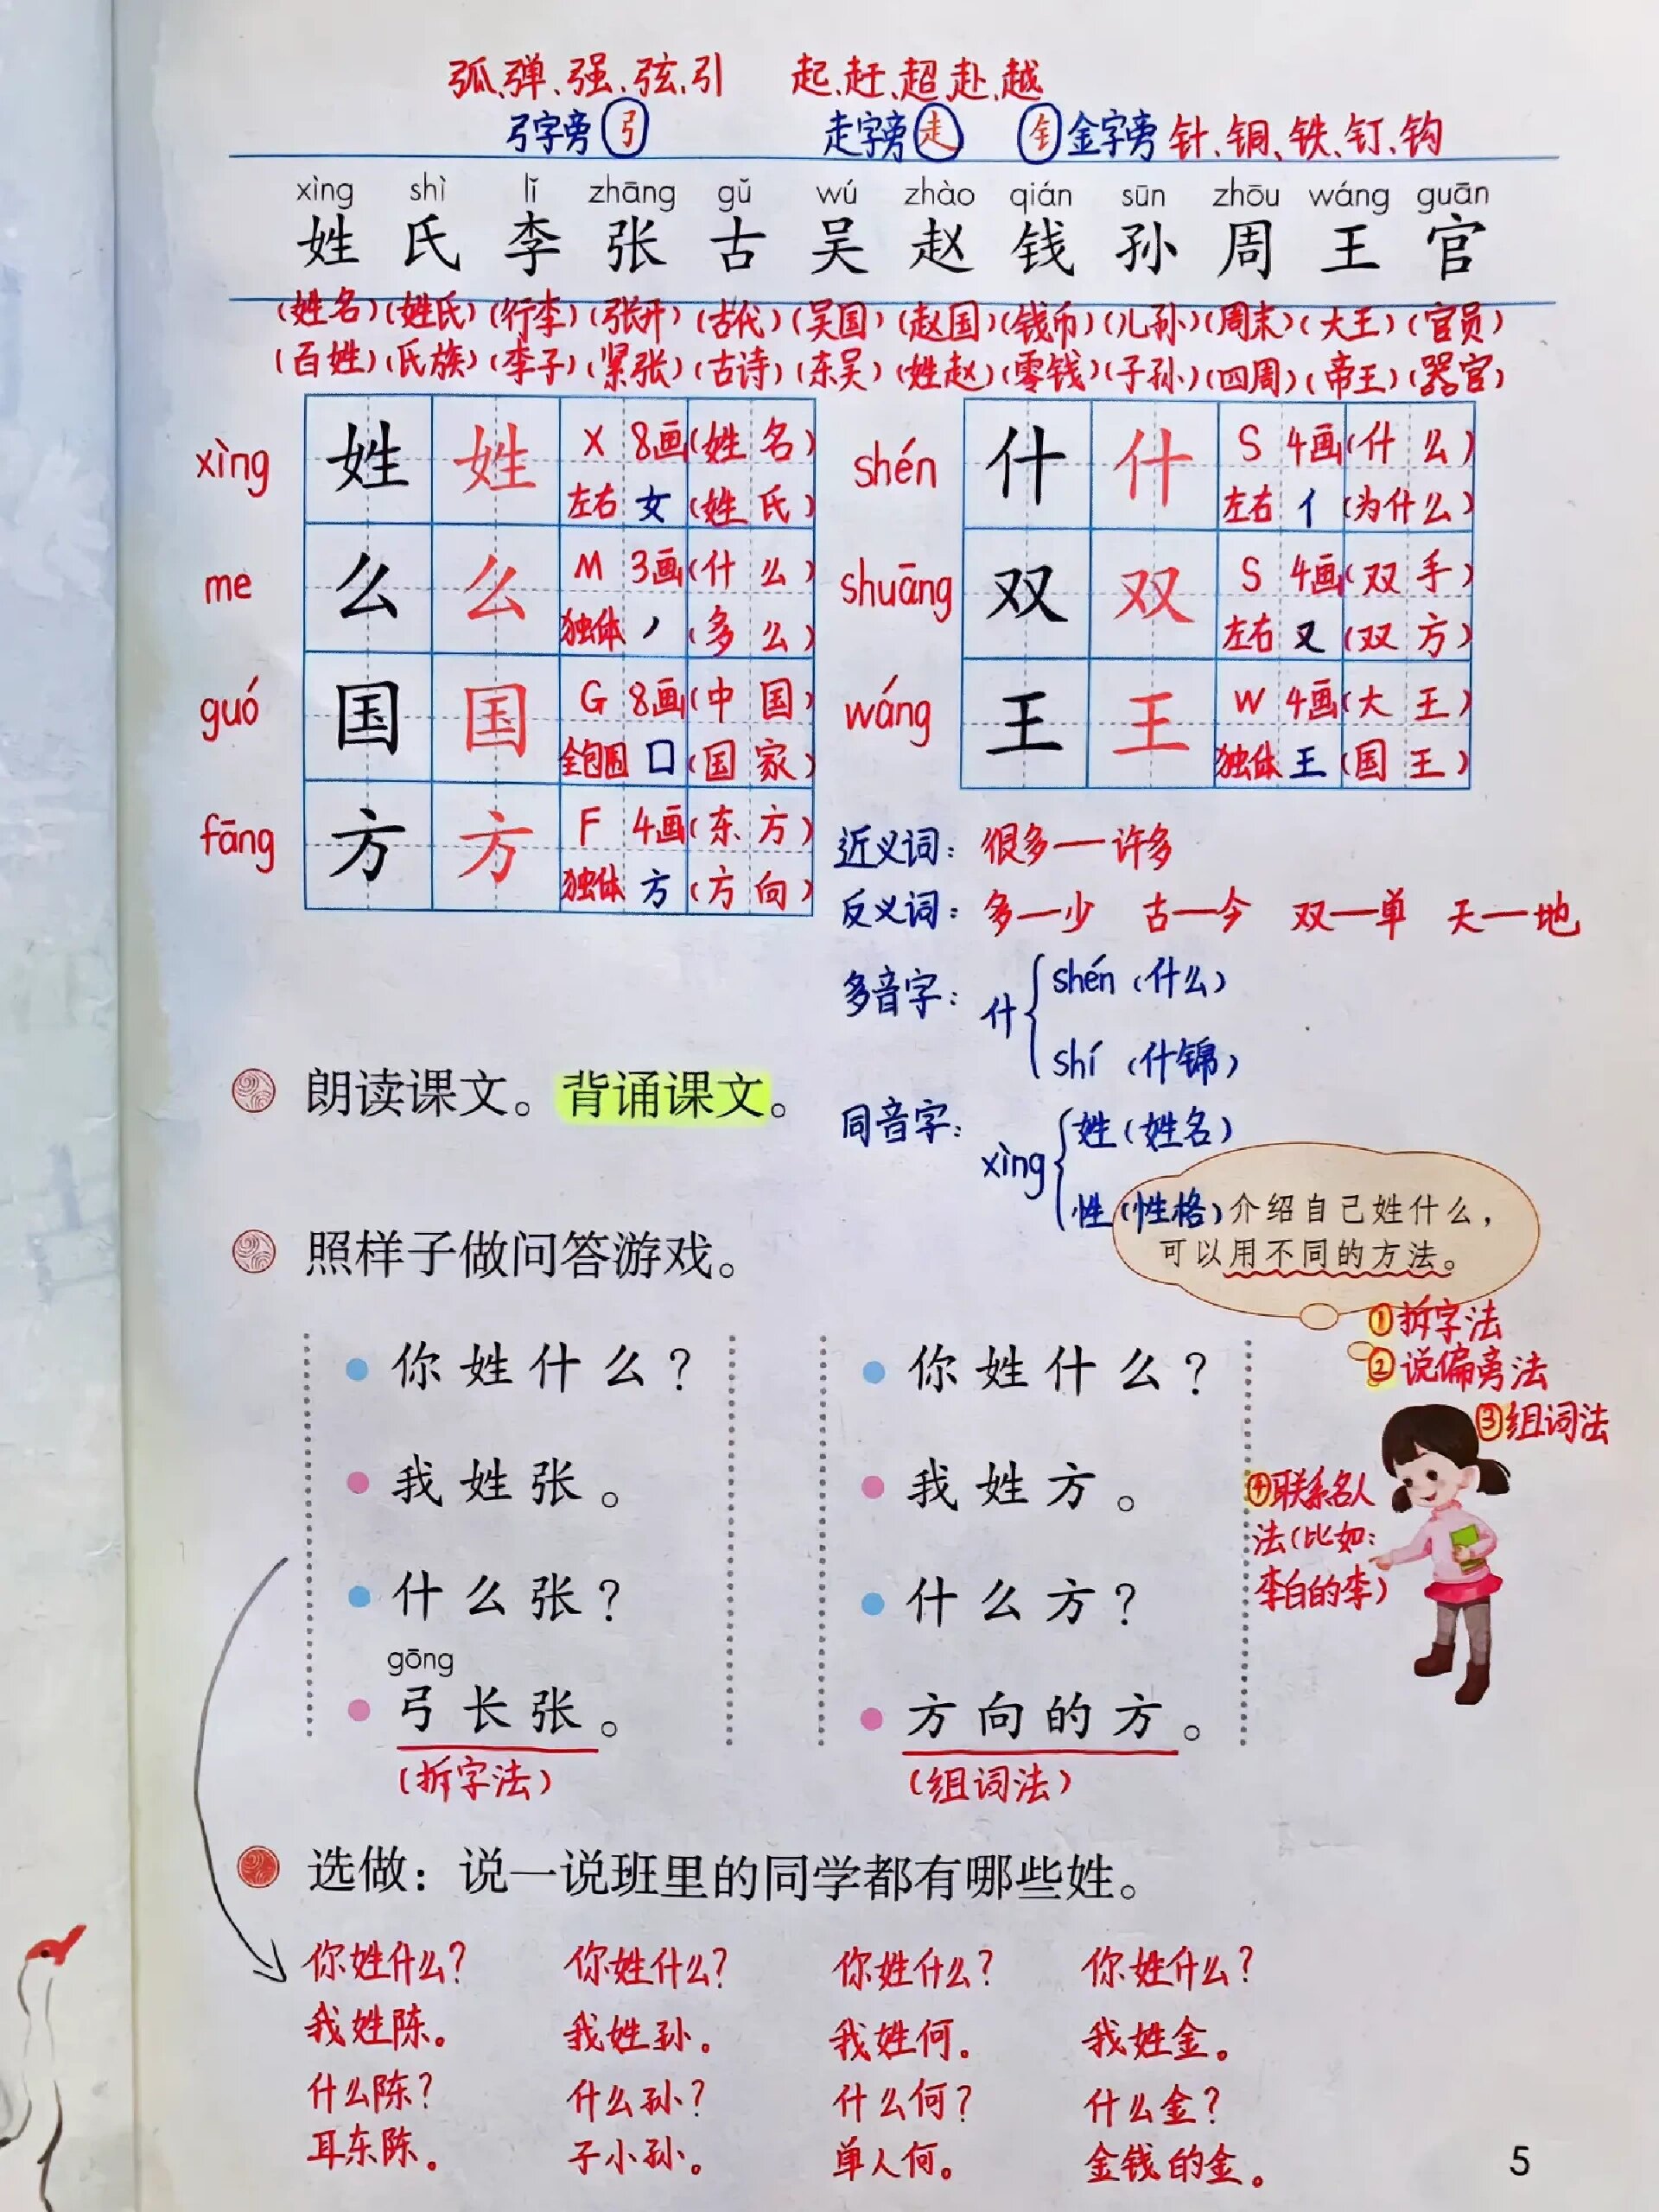 弧、弹、强、弦、引 起、赶、超、赴、越
弓字旁 弓 走字旁 走 钅 金字旁 针、铜、铁、钉、钩
xìng shì lǐ zhāng gǔ wú zhào qián sūn zhōu wáng guān
姓 氏 李 张 古 吴 赵 钱 孙 周 王 官
(姓名)(姓氏)(行李)(张开)(古代)(吴国)(赵国)(钱币)(儿孙)(周末)(大王)(官员)
(百姓)(氏族)(李子)(紧张)(古诗)(东吴)(姓赵)(零钱)(子孙)(四周)(帝王)(器官)
xìng 姓 姓 X 8画(姓名)
左右 女 (姓氏)
me 么 么 M 3画(什么)
独体 丿 (多么)
guó 国 国 G 8画(中国)
全包围 囗 (国家)
fāng 方 方 F 4画(东方)
独体 方 (方向)
shén 什 什 S 4画(什么)
左右 亻 (为什么)
shuāng 双 双 S 4画(双手)
左右 又 (双方)
wáng 王 王 W 4画(大王)
独体 王 (国王)
近义词：很多—许多
反义词：多—少 古—今 双—单 天—地
多音字：什 shén (什么)
shí (什锦)
同音字：xìng 姓(姓名)
性(性格)
朗读课文。背诵课文。
照样子做问答游戏。
介绍自己姓什么，
可以用不同的方法。
①拆字法
②说偏旁法
③组词法
④联系名人
法(比如：
李白的李)
你姓什么？
我姓张。
什么张？
gōng
弓长张。
(拆字法)
你姓什么？
我姓方。
什么方？
方向的方。
(组词法)
选做：说一说班里的同学都有哪些姓。
你姓什么？ 你姓什么？ 你姓什么？ 你姓什么？
我姓陈。 我姓孙。 我姓何。 我姓金。
什么陈？ 什么孙？ 什么何？ 什么金？
耳东陈。 子小孙。 单人何。 金钱的金。
5